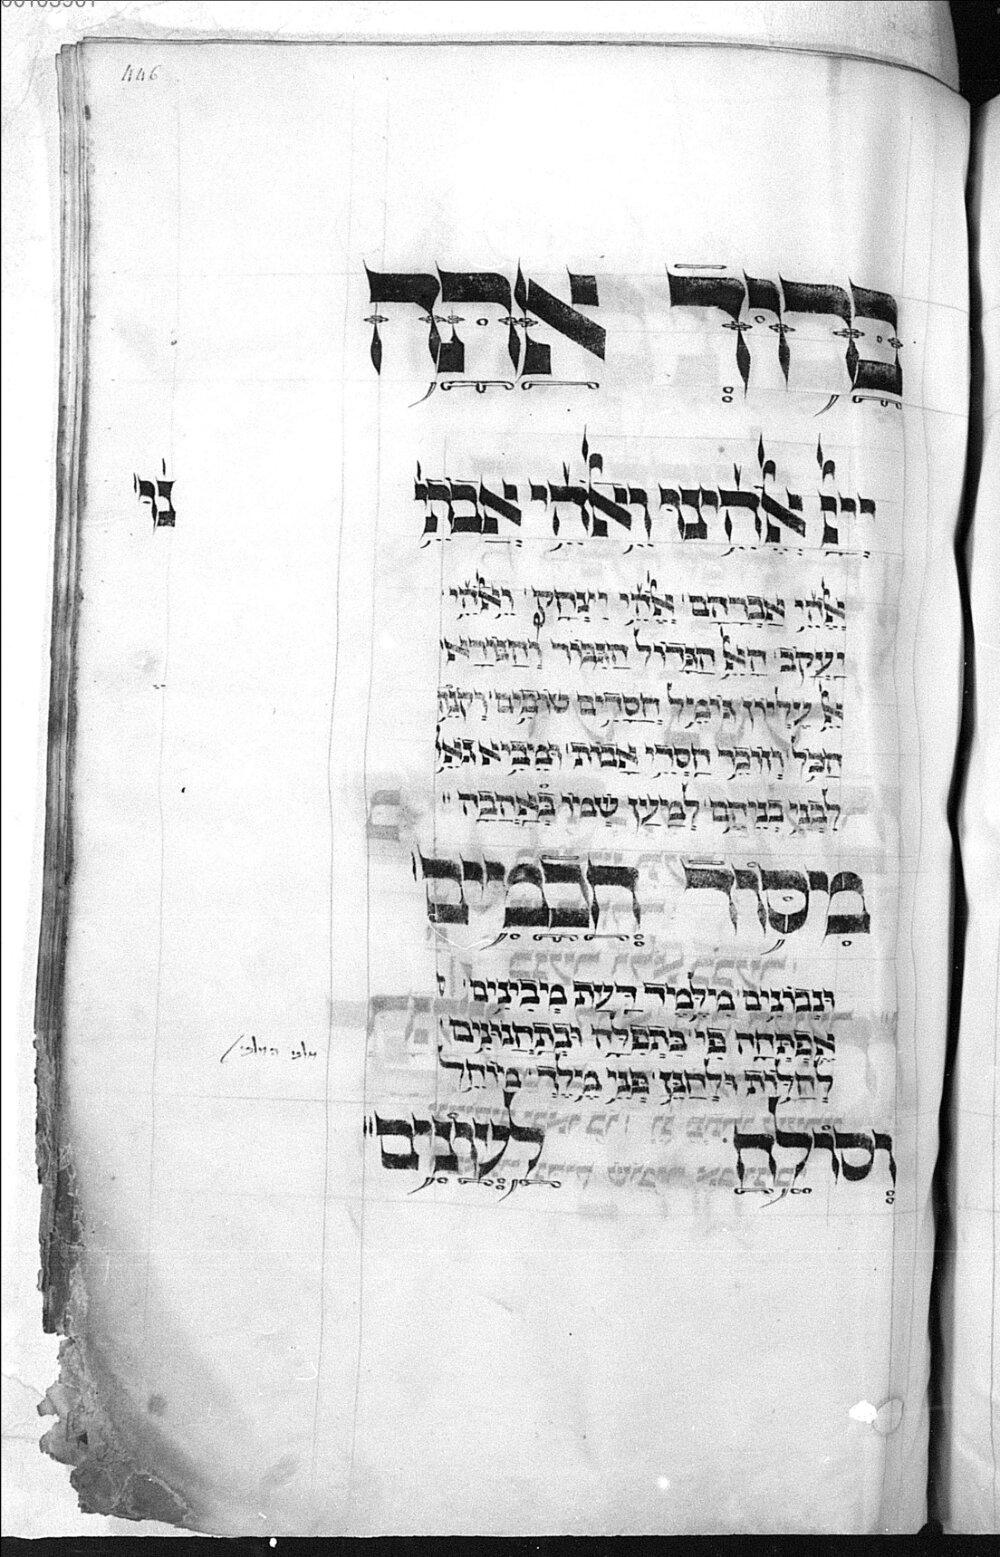 446
ברוך אתה
ייי אלהינו ואלהי אבתי
אלהי אברהם אלהי יצחק ואלהי
יעקב האל הגדול הגבור והנורא
אל עליון גומיל חסדים טובים וקנה
הכל וזוכר חסדי אבות ומביא גאל
לבני בניהם למען שמו באהבה
מסוד חכמים
ונבונים מילמיד דעת מיבינים
אפתחה פי בתפלה ובתחנונים
לחלות ולחנן פני מילך מוחל
וסולח לעונים